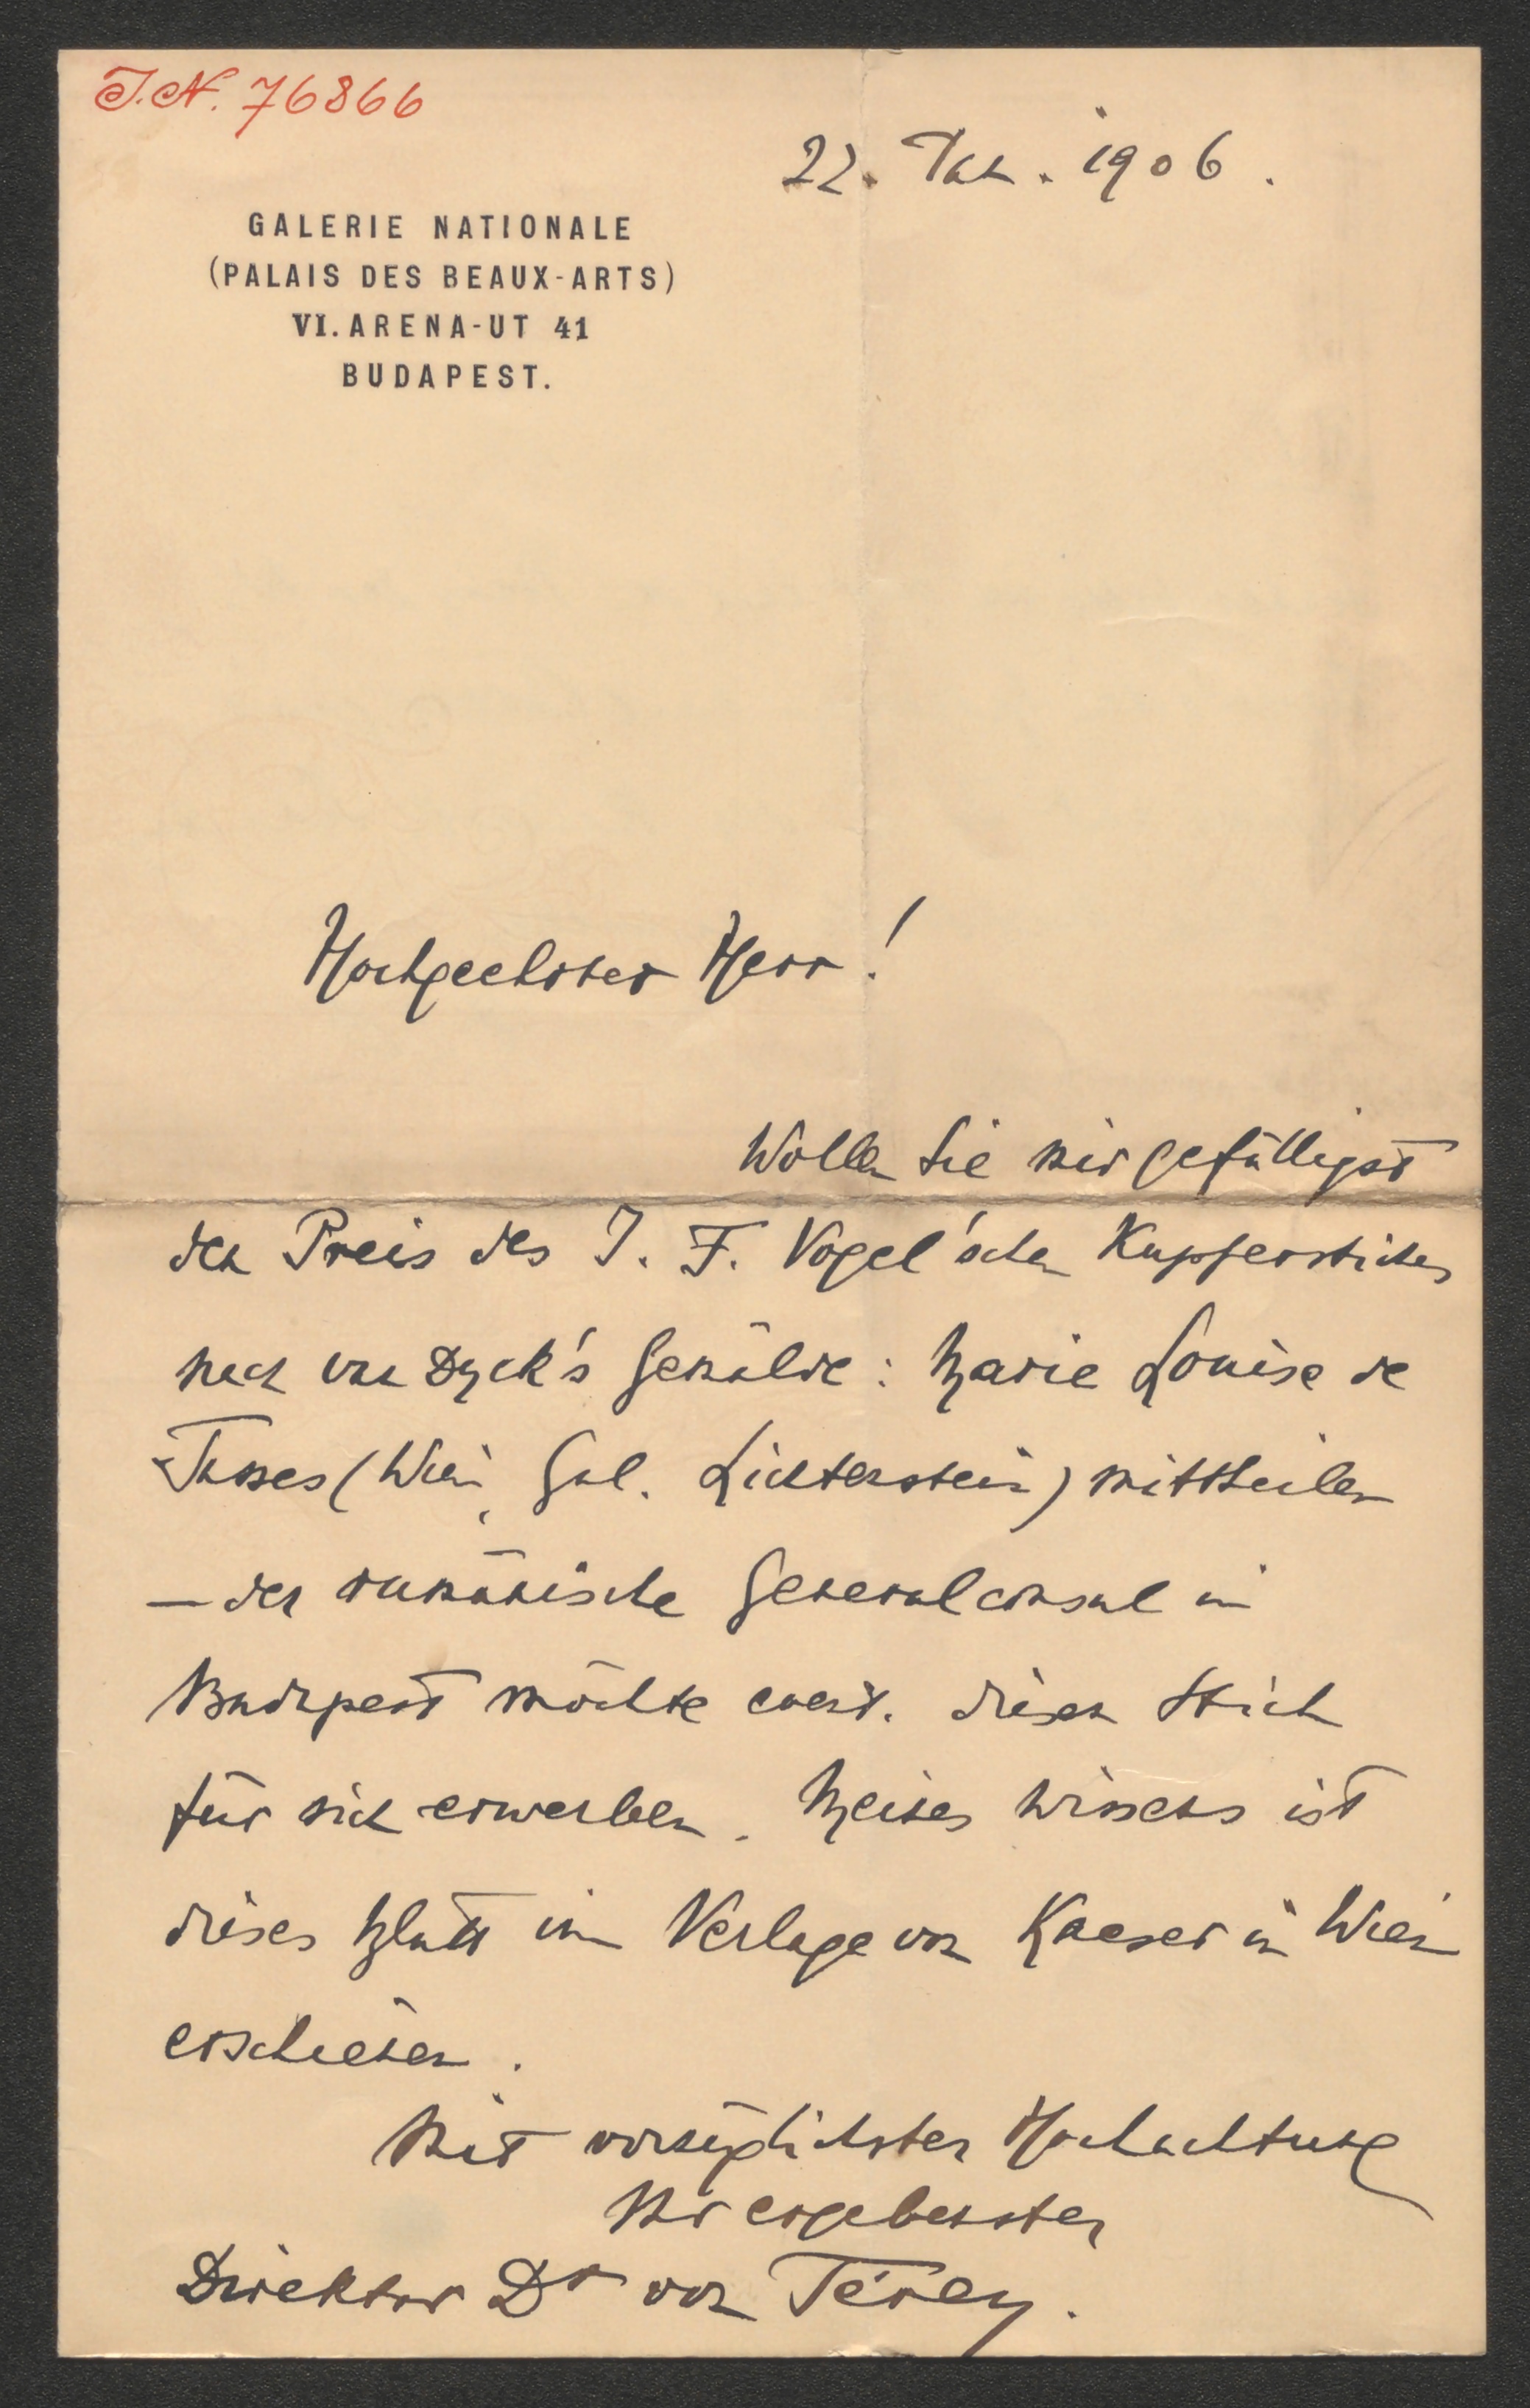 J.N. 76866
22. Jan. 1906.
GALERIE NATIONALE
(PALAIS DES BEAUX-ARTS)
VI. ARENA-UT 41
BUDAPEST.
Hochgeehrter Herr!
Wollen Sie mir gefälligst
den Preis des J. F. Vogel'schen Kupferstiches
nach van Dyck's Gemälde: Marie Louise de
Tasses (Wien, Gal. Lichtenstein) mittheilen
— der rumänische Generalconsul in
Budapest möchte event. diesen Stich
für sich erwerben. Meines Wissens ist
dieses Blatt im Verlage von Kaeser in Wien
erschienen.
Mit vorzüglichster Hochachtung
Ihr ergebenster
Direktor Dr von Térey.